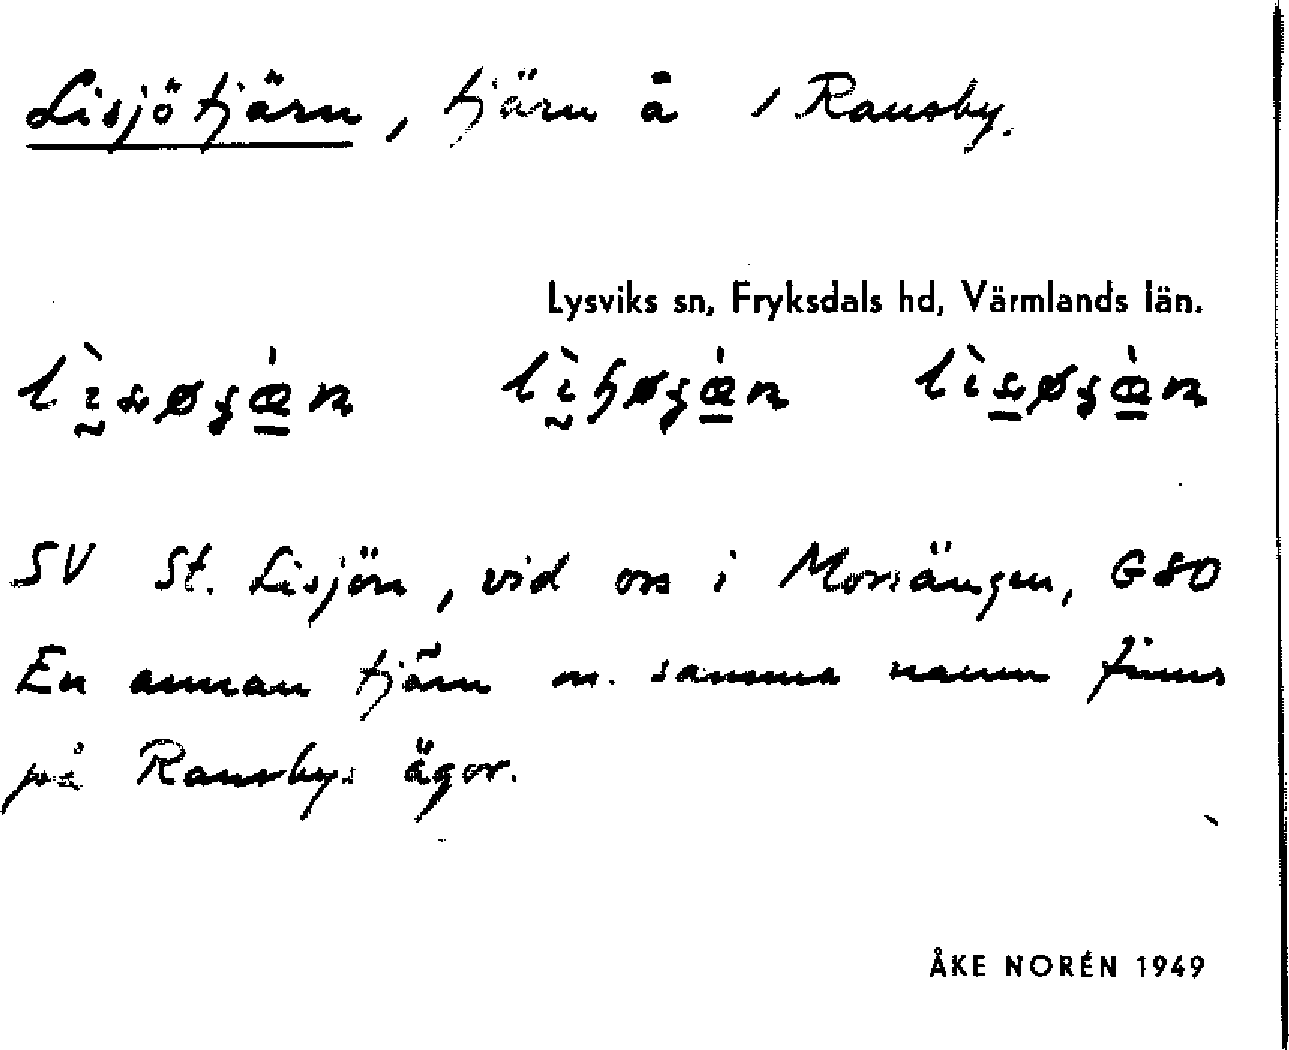 Lisjötjärn, tjärn å 1 Ransby.
Lysviks sn, Fryksdals hd, Värmlands län.
SV St. Lisjön, vid oss i Morsängen, GSO
En annan tjärn m. samma namn finns
på Ransbys ägor.
ÅKE NORÉN 1949